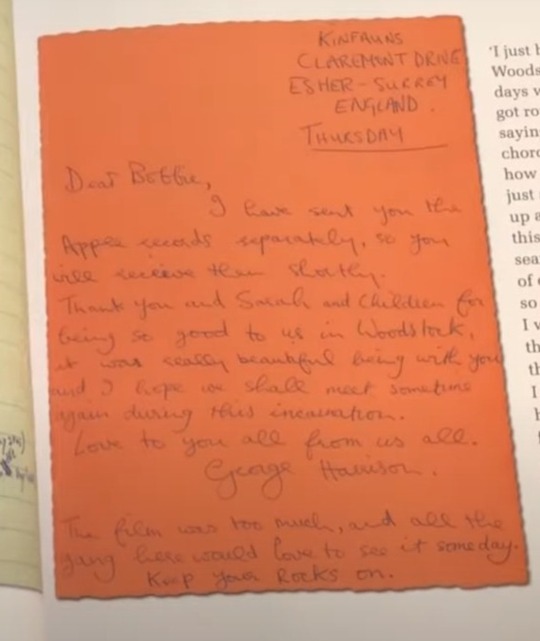 KINFAUNS
CLAREMONT DRIVE
ESHER - SURREY
ENGLAND.
THURSDAY
Dear Bobbie,
I have sent you the
Apple records separately, so you
will receive them shortly.
Thank you and Sarah and Children for
being so good to us in Woodstock,
it was really beautiful being with you
and I hope we shall meet sometime
again during this incarnation.
Love to you all from us all.
George Harrison.
The film was too much, and all the
gang here would love to see it someday.
Keep your Rocks on.
'I just
Woods
days
got
sayin
chor
how
just
up a
this
sea
of
so
I
th
th
I